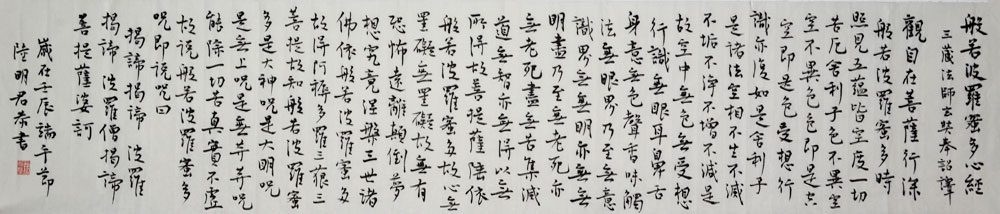 般若波羅蜜多心經
三藏法師玄奘奉詔譯
觀自在菩薩行深
般若波羅蜜多時
照見五蘊皆空度一切
苦厄舍利子色不異空
空不異色色即是空
空即是色受想行
識亦復如是舍利子
是諸法空相不生不滅
不垢不淨不增不減是
故空中無色無受想
行識無眼耳鼻舌
身意無色聲香味觸
法無眼界乃至無意
識界無無明亦無無
明盡乃至無老死亦
無老死盡無苦集滅
道無智亦無得以無
所得故菩提薩陲依
般若波羅蜜多故心無
罣礙無罣礙故無有
恐怖遠離顛倒夢
想究竟涅槃三世諸
佛依般若波羅蜜多
故得阿耨多羅三藐三
菩提故知般若波羅蜜
多是大神呪是大明呪
是無上呪是無等等呪
能除一切苦真實不虛
故說般若波羅蜜多
呪即說呪曰
揭諦揭諦 波羅
揭諦 波羅僧揭諦
菩提薩婆訶
歲在壬辰端午節
陸明君恭書